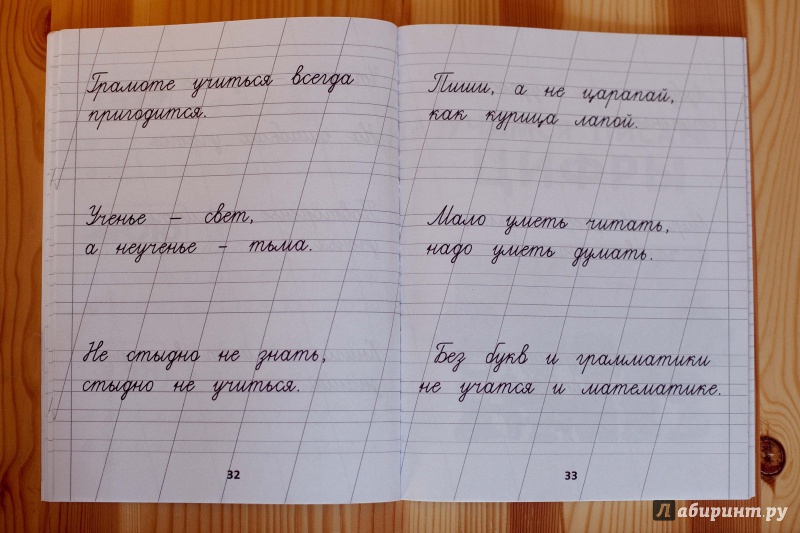 Грамоте учиться всегда
пригодится.
Ученье – свет,
а неученье – тьма.
Не стыдно не знать,
стыдно не учиться.
32
Пиши, а не царапай,
как курица лапой.
Мало уметь читать,
надо уметь думать.
Без букв и грамматики
не учатся и математике.
33
Лабиринт.ру